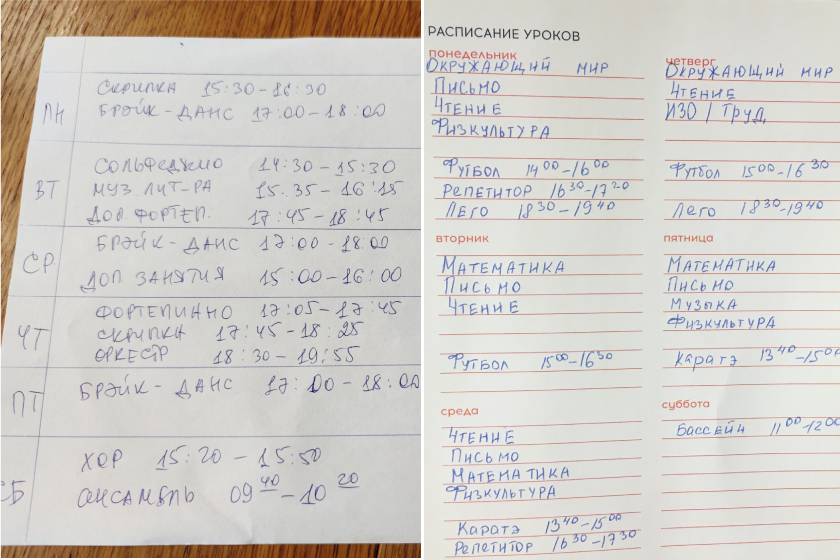 ПН
СКРИПКА 15:30-16:30
БРЭЙК-ДАНС 17:00-18:00
ВТ
СОЛЬФЕДЖИО 14:30-15:30
МУЗ ЛИТ-РА 15.35-16:15
ДОП ФОРТЕП. 17:45-18:45
СР
БРЭЙК-ДАНС 17:00-18.00
ДОП ЗАНЯТИЯ 15:00-16:00
ЧТ
ФОРТЕПИАНО 17:05-17:45
СКРИПКА 17:45-18:25
ОРКЕСТР 18:30-19:55
ПТ
БРЭЙК-ДАНС 17:00-18:00
СБ
ХОР 15:20-15:50
АНСАМБЛЬ 09 40-10 20
РАСПИСАНИЕ УРОКОВ
понедельник
ОКРУЖАЮЩИЙ МИР
ПИСЬМО
ЧТЕНИЕ
ФИЗКУЛЬТУРА
ФУТБОЛ 14 00-16 00
РЕПЕТИТОР 16 30-17 20
ЛЕГО 18 30-19 40
вторник
МАТЕМАТИКА
ПИСЬМО
ЧТЕНИЕ
ФУТБОЛ 15 00-16 30
среда
ЧТЕНИЕ
ПИСЬМО
МАТЕМАТИКА
ФИЗКУЛЬТУРА
КАРАТЭ 13 40-15 00
РЕПЕТИТОР 16 30-17 30
четверг
ОКРУЖАЮЩИЙ МИР
ЧТЕНИЕ
ИЗО / ТРУД
ФУТБОЛ 15 00-16 30
ЛЕГО 18 30-19 40
пятница
МАТЕМАТИКА
ПИСЬМО
МУЗЫКА
ФИЗКУЛЬТУРА
КАРАТЭ 13 40-15 00
суббота
БАССЕЙН 11 00-12 00